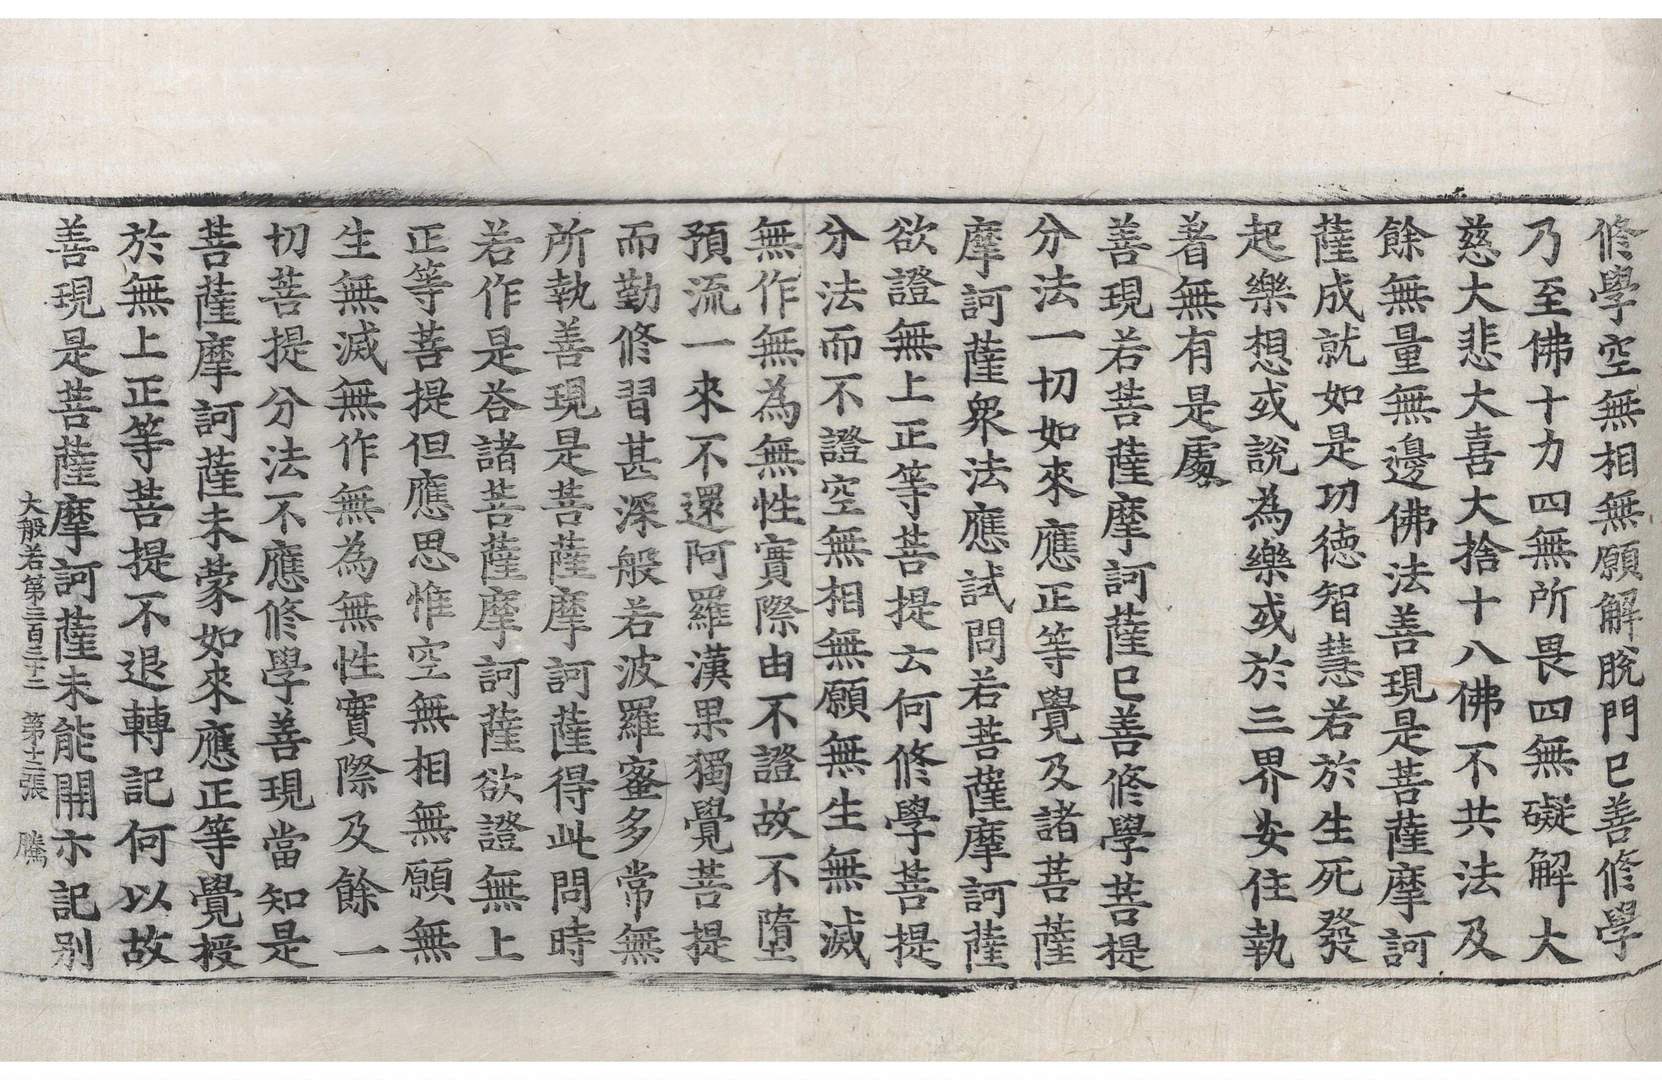 修學空無相無願解脫門已善修學
乃至佛十力四無所畏四無礙解大
慈大悲大喜大捨十八佛不共法及
餘無量無邊佛法善現是菩薩摩訶
薩成就如是功德智慧若於生死發
起樂想或說為樂或於三界安住執
著無有是處
善現若菩薩摩訶薩已善修學菩提
分法一切如來應正等覺及諸菩薩
摩訶薩衆法應試問若菩薩摩訶薩
欲證無上正等菩提云何修學菩提
分法而不證空無相無願無生無滅
無作無為無性實際由不證故不墮
預流一來不還阿羅漢果獨覺菩提
而勤修習甚深般若波羅蜜多常無
所執善現是菩薩摩訶薩得此問時
若作是荅諸菩薩摩訶薩欲證無上
正等菩提但應思惟空無相無願無
生無滅無作無為無性實際及餘一
切菩提分法不應修學善現當知是
菩薩摩訶薩未蒙如來應正等覺授
於無上正等菩提不退轉記何以故
善現是菩薩摩訶薩未能開示記別
大般若第三百三十二 第十二張 騰